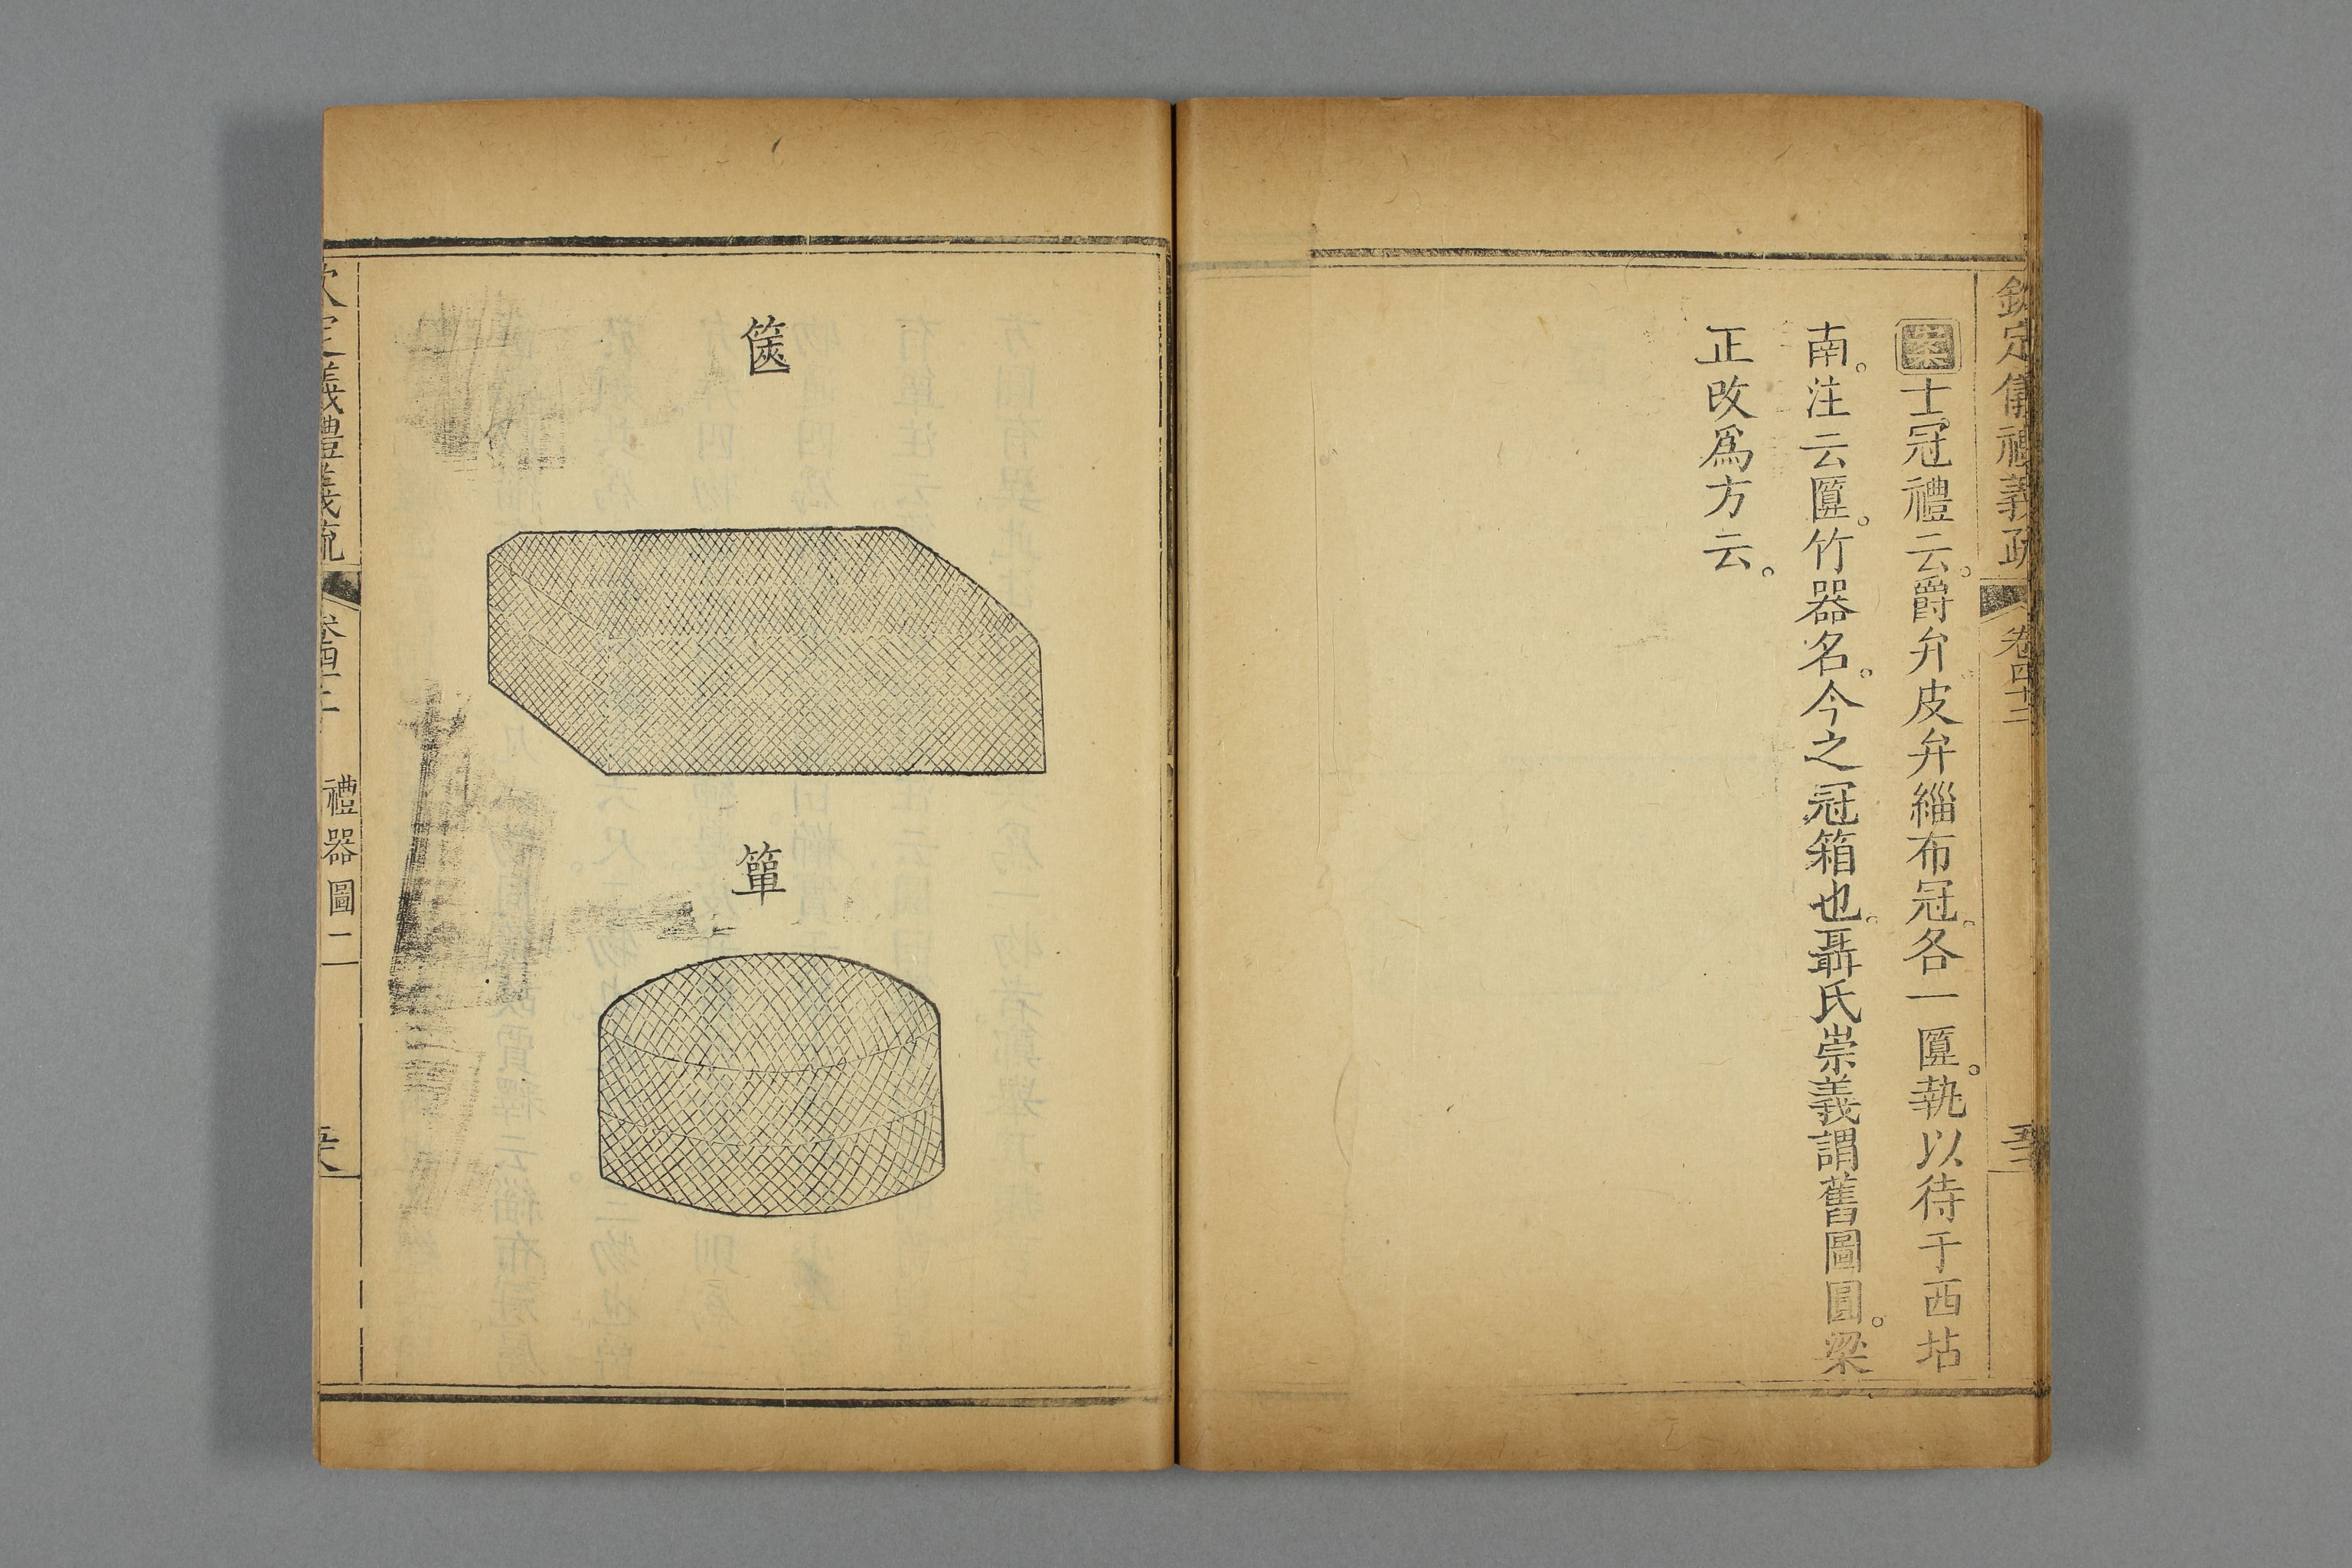 欽定儀禮義疏 卷四十二
案士冠禮云。爵弁皮弁緇布冠。各一匴。執以待于西坫
南。注云匴。竹器名。今之冠箱也。聶氏崇義謂舊圖圓。梁
正改爲方云。
篋
簞
欽定儀禮義疏 卷四十二 禮器圖二